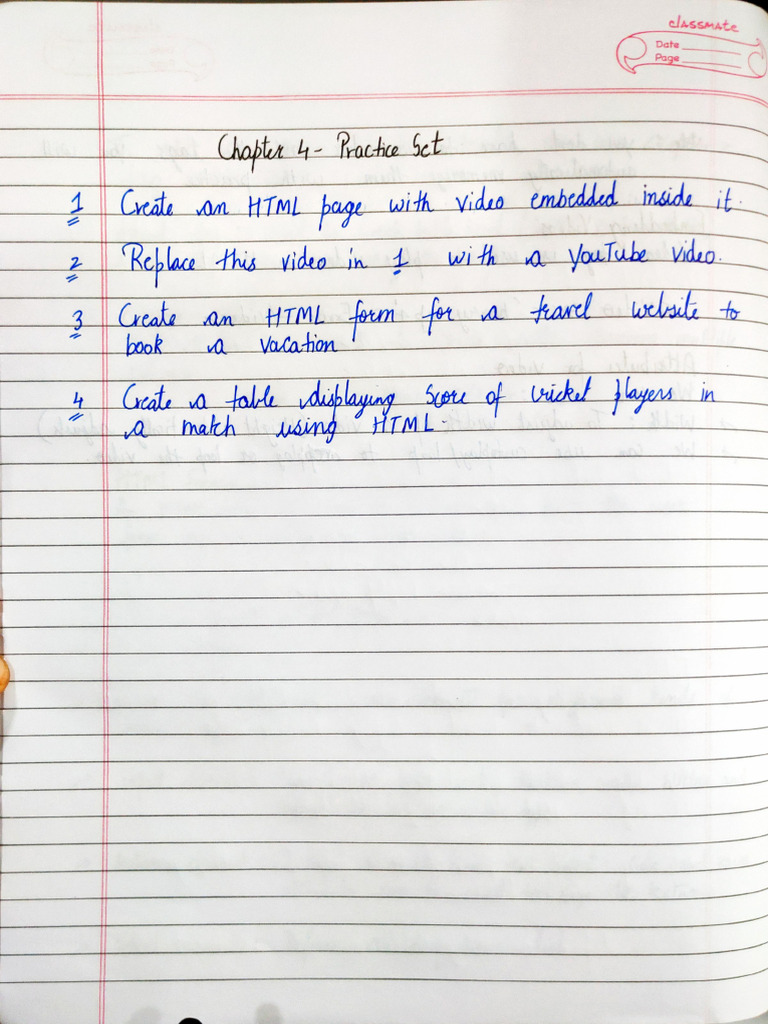 classmate
Date
Page
Chapter 4 - Practice Set
1 Create an HTML page with video embedded inside it.
2 Replace this video in 1 with a YouTube video.
3 Create an HTML form for a travel website to
book a vacation
4 Create a table displaying score of cricket players in
a match using HTML.